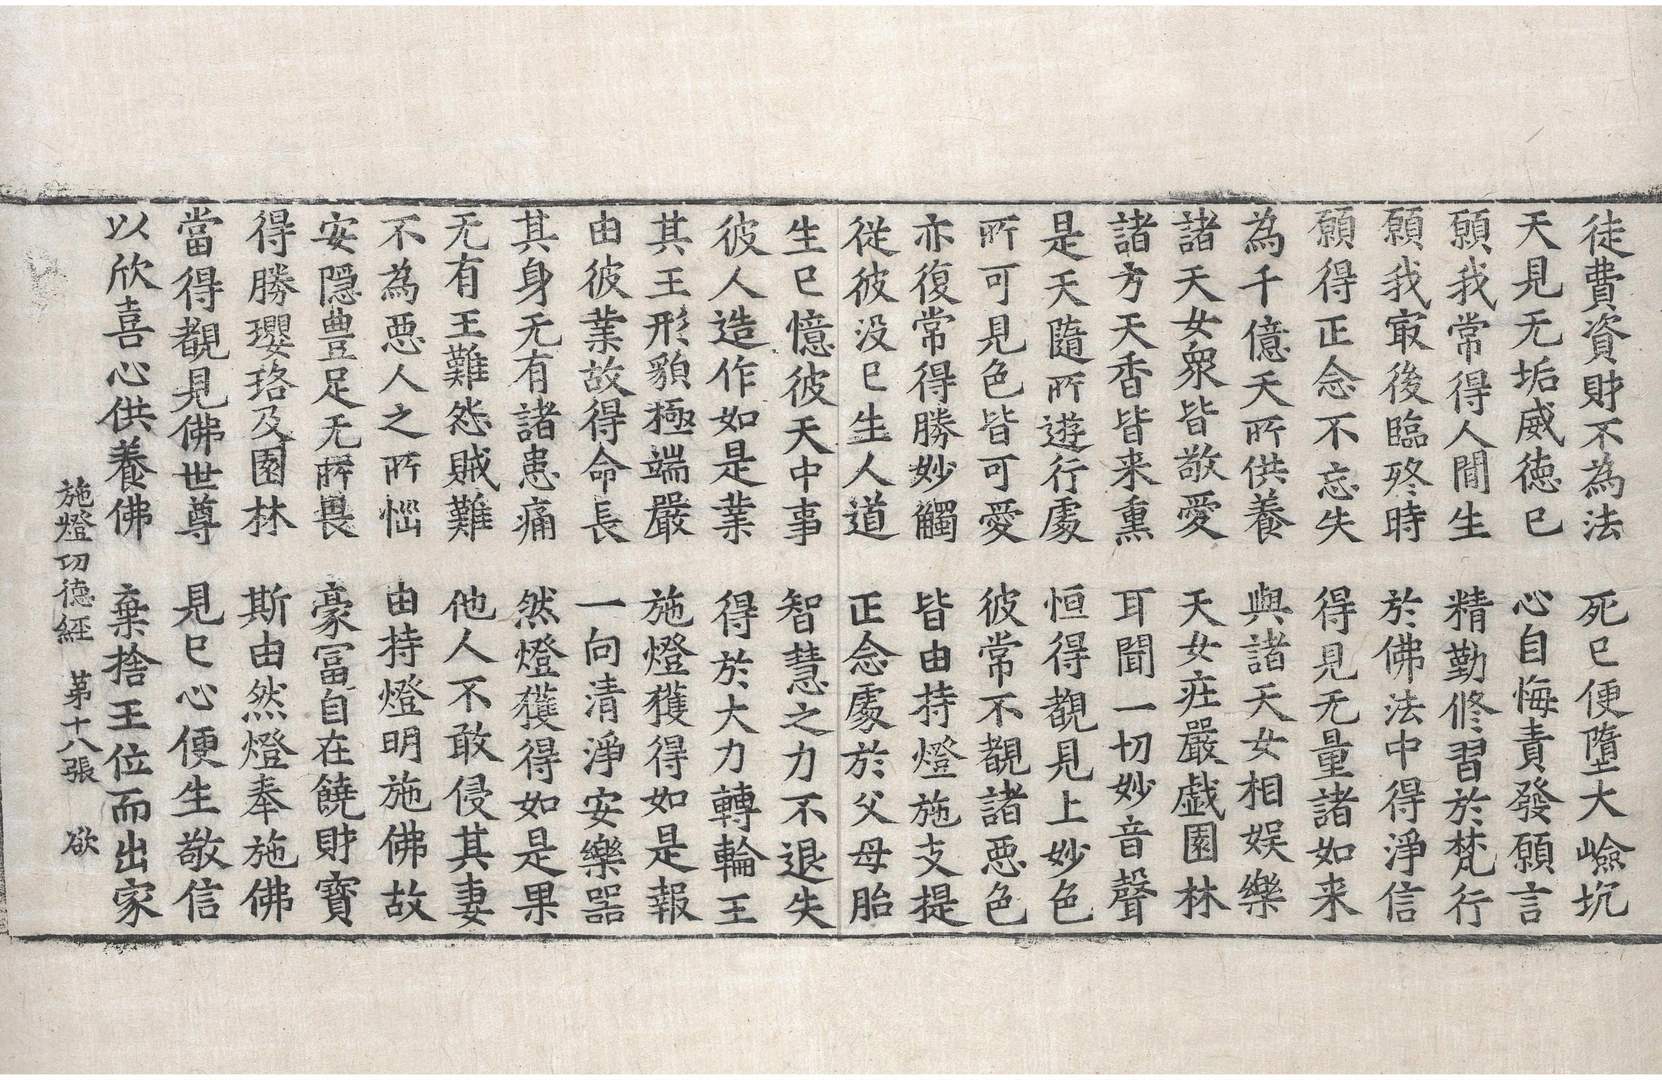 徒費資財不為法　死已便墮大嶮坑
天見无垢威德已　心自悔責發願言
願我常得人間生　精勤修習於梵行
願我㝡後臨終時　於佛法中得淨信
願得正念不忘失　得見无量諸如来
為千億天所供養　與諸天女相娛樂
諸天女衆皆敬愛　天女庄嚴戱園林
諸方天香皆来熏　耳聞一切妙音聲
是天隨所遊行處　恒得覩見上妙色
所可見色皆可愛　彼常不覩諸惡色
亦復常得勝妙觸　皆由持燈施支提
從彼没已生人道　正念處於父母胎
生已憶彼天中事　智慧之力不退失
彼人造作如是業　得於大力轉輪王
其王形貌極端嚴　施燈獲得如是報
由彼業故得命長　一向清淨安樂器
其身无有諸患痛　然燈獲得如是果
无有王難怨賊難　他人不敢侵其妻
不為惡人之所惱　由持燈明施佛故
安隱豊足无所畏　豪冨自在饒財寳
得勝瓔珞及園林　斯由然燈奉施佛
當得覩見佛世尊　見已心便生敬信
以欣喜心供養佛　棄捨王位而出家
施燈功德經　第十八張　欲